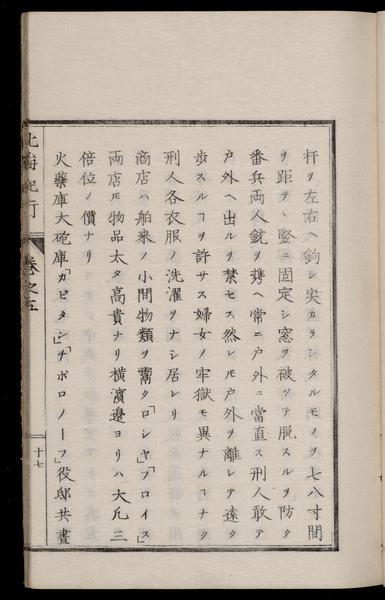 杆ヲ左右ヘ鉤シ尖カラシタルモノヲ七八寸間
ヲ距テヽ竪ニ固定シ窓ヲ破ツテ脱スルヲ防ク
番兵両人銃ヲ携ヘ常ニ戸外ニ當直ス刑人敢テ
戸外ヘ出ルヲ禁セス然レ𪜈戸外ヲ離レテ遠ク
歩スルヿヲ許サス婦女ノ牢獄モ異ナルヿナク
刑人各衣服ノ洗濯ヲナシ居レリ
商店ハ舶来ノ小間物類ヲ鬻ク「クロシヤ」「フロイス」
両店𪜈物品太タ高貴ナリ横濱邊ヨリハ大凡三
倍位ノ價ナリ
火藥庫大砲庫「カピタン」「チボロノーフ」役邸共畫
北海紀行 卷之五
十七